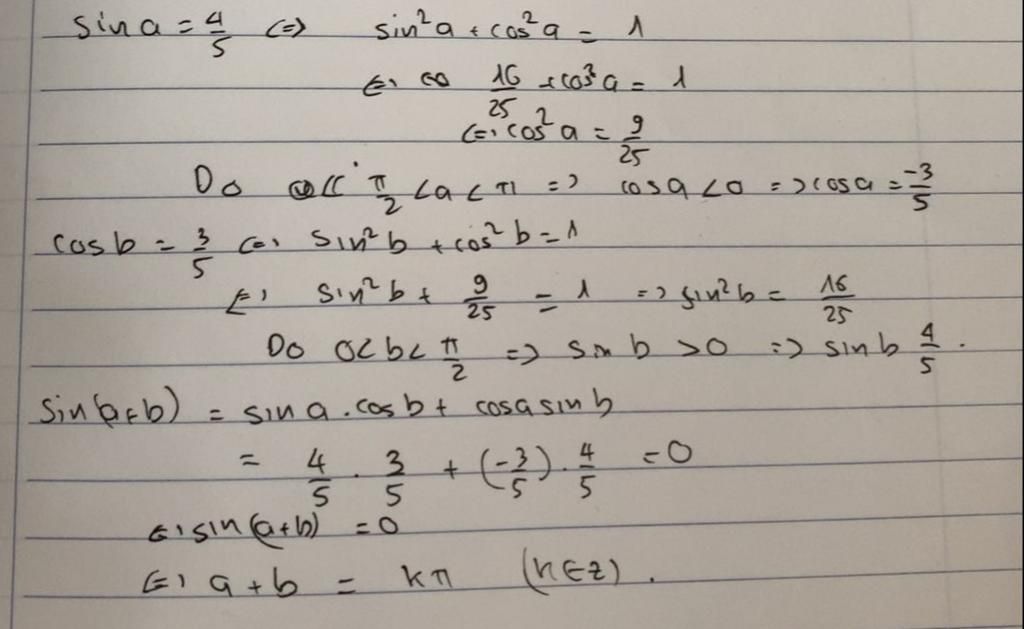 sin a = 4/5 <=> sin²a + cos²a = 1
<=> 16/25 + cos²a = 1
<=> cos²a = 9/25
Do π/2 < a < π => cos a < 0 => cos a = -3/5
cos b = 3/5 <=> sin²b + cos²b = 1
<=> sin²b + 9/25 = 1 => sin²b = 16/25
Do 0 < b < π/2 => sin b > 0 => sin b 4/5 .
sin(a+b) = sin a . cos b + cos a sin b
= 4/5 . 3/5 + (-3/5) . 4/5 = 0
<=> sin(a+b) = 0
<=> a + b = kπ (k∈z) .